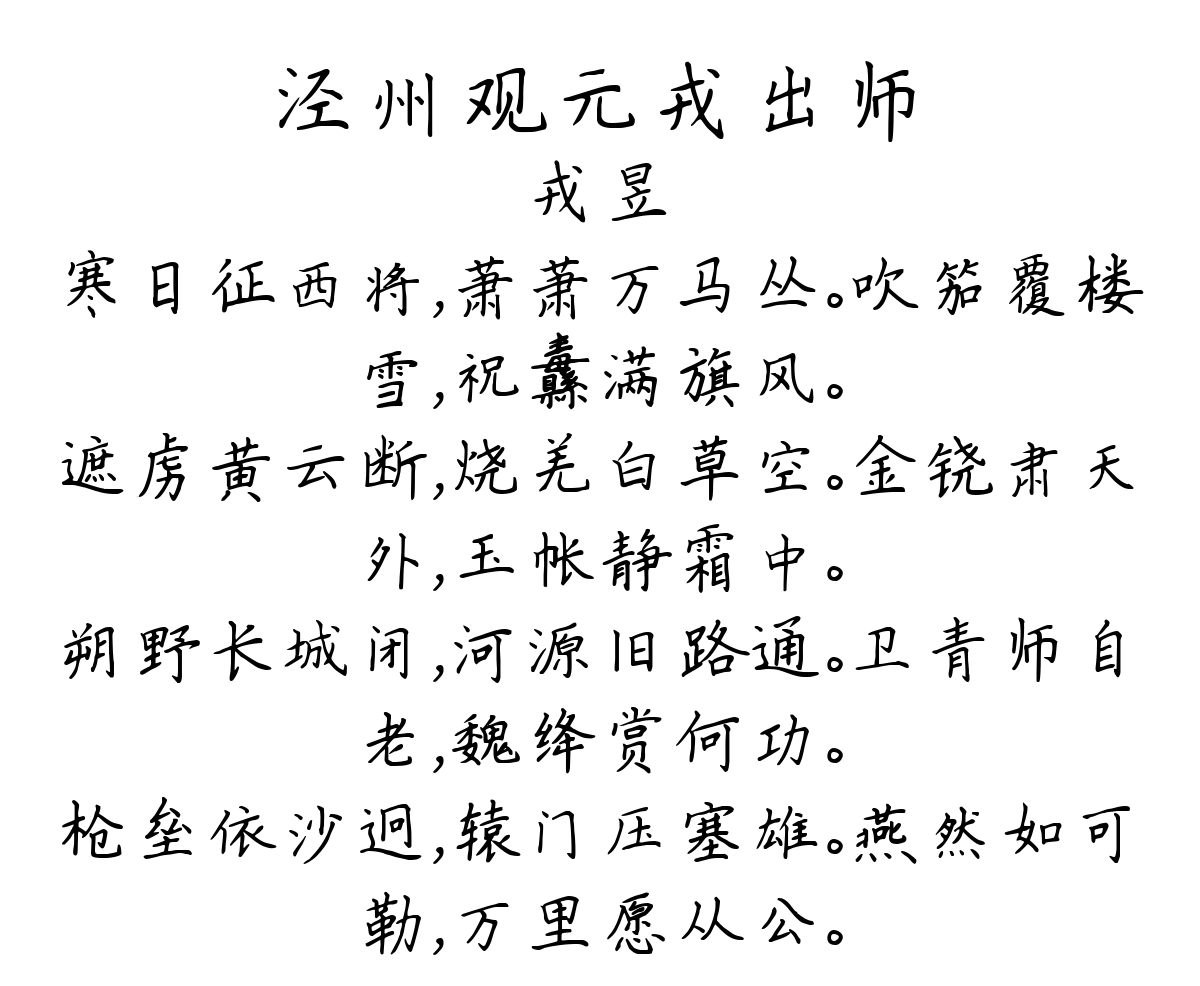 泾州观元戎出师
戎昱
寒日征西将,萧萧万马丛。吹笳覆楼
雪,祝纛满旗风。
遮虏黄云断,烧羌白草空。金铙肃天
外,玉帐静霜中。
朔野长城闭,河源旧路通。卫青师自
老,魏绛赏何功。
枪垒依沙迥,辕门压塞雄。燕然如可
勒,万里愿从公。